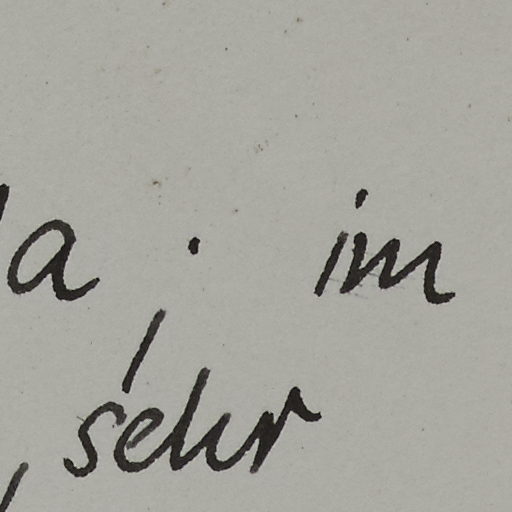 a; im
sehr